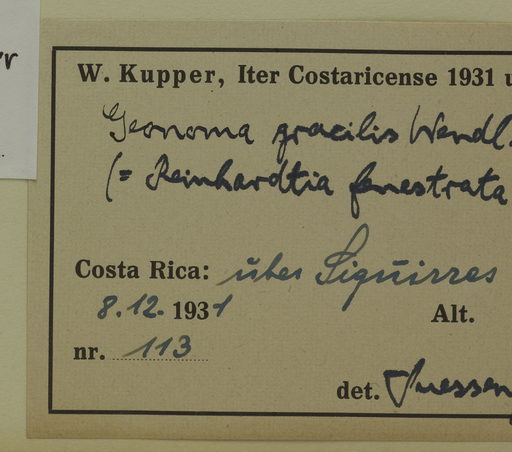 W. Kupper, Iter Costaricense 1931 u
Geonoma gracilis Wendl.
(= Reinhardtia fenestrata
Costa Rica: über Siquirres
8.12. 1931 Alt.
nr. 113
det.